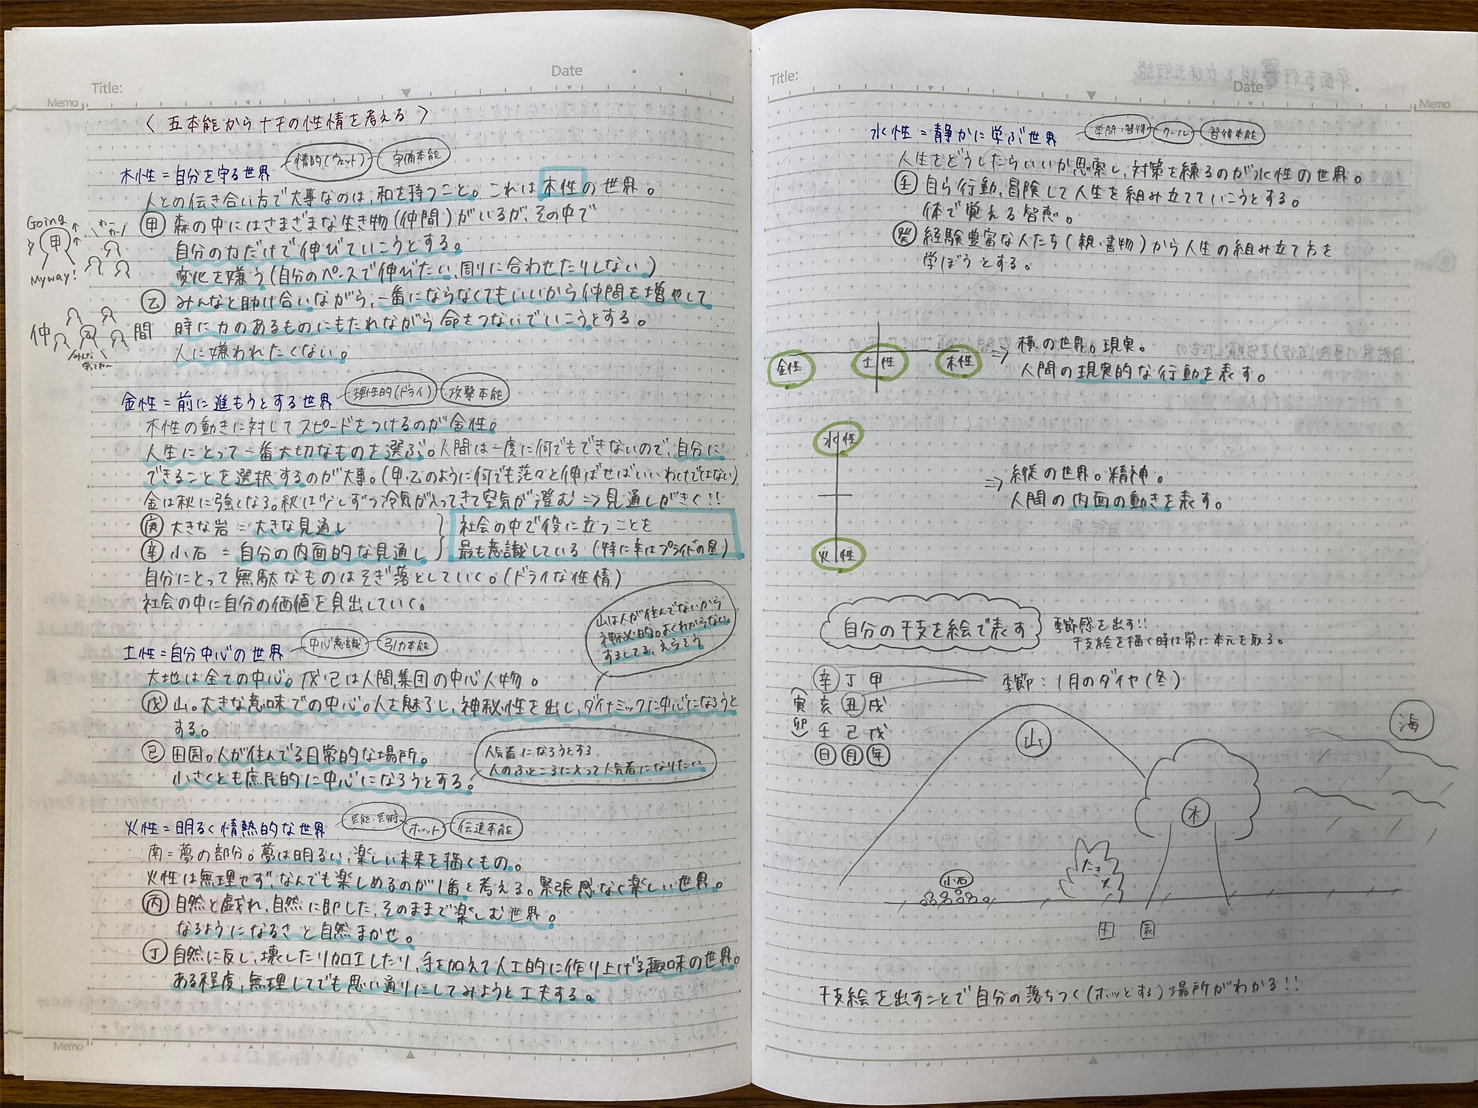 Title:
Date
Memo
〈 五本能から十干の性情を考える 〉
木性＝自分を守る世界 情的(ウェット) 守備本能
人との伝き合い方で大事なのは、和を持つこと。これは木性の世界。
甲 森の中にはさまざまな生き物(仲間)がいるが、その中で
自分の力だけで伸びていこうとする。
変化を嫌う(自分のペースで伸びたい、周りに合わせたりしない)
Going
甲
My way!
乙 みんなと助け合いながら、一番にならなくてもいいから仲間を増やして
時に力のあるものにもたれながら命をつないでいこうとする。
人に嫌われたくない。
仲 間
金性＝前に進もうとする世界 理性的(ドライ) 攻撃本能
木性の動きに対してスピードをつけるのが金性。
人生にとって一番大切なものを選ぶ。人間は一度に何でもできないので、自分に
できることを選択するのが大事。(甲・乙のように何でも茫々と伸ばせばいいわけではない)
金は秋に強くなる。秋は少しずつ冷気が入ってきて空気が澄む⇒見通しがきく!!
庚 大きな岩＝大きな見通し
辛 小石＝自分の内面的な見通し
社会の中で役に立つことを
最も意識している(特に辛はプライドの星)
自分にとって無駄なものはそぎ落としていく。(ドライな性情)
社会の中に自分の価値を見出していく。
土性＝自分中心の世界 中心意識 引力本能
山は人が住んでないから
神秘的。よくわからない。
すましてる、えらそう
大地は全ての中心。戊・己は人間集団の中心人物。
戊 山。大きな意味での中心。人を魅了し、神秘性を出し、ダイナミックに中心になろうと
する。
己 田園。人が住んでる日常的な場所。
小さくとも庶民的に中心になろうとする。
人気者になろうとする
人のるところに入って人気者になりたい
火性＝明るく情熱的な世界 芸能・芸術 ホット 伝達本能
南＝夢の部分。夢は明るい、楽しい未来を描くもの。
火性は無理せず、なんでも楽しめるのが1番と考える。緊張感なく楽しい世界。
丙 自然と戯れ、自然に即した、そのままで楽しむ世界。
なるようになるさと自然まかせ。
丁 自然に反し、壊したり加工したり、手を加えて人工的に作り上げる趣味の世界。
ある程度、無理してでも思い通りにしてみようと工夫する。
Memo
Title:
Date
Memo
水性＝静かに学ぶ世界 学問・習得 クール 習得本能
人生をどうしたらいいか思索し、対策を練るのが水性の世界。
壬 自ら行動、冒険して人生を組み立てていこうとする。
体で覚える智恵。
癸 経験豊富な人たち(親・書物)から人生の組み立て方を
学ぼうとする。
金性 土性 木性
⇒ 横の世界。現実。
人間の現実的な行動を表す。
水性
火性
⇒ 縦の世界。精神。
人間の内面の動きを表す。
自分の干支を絵で表す
季節感を出す!!
干支絵を描く時は常に本元を取る。
辛 丁 甲
季節：1月のダイヤ(冬)
寅 亥 丑 戌
卯 壬 己 戊
日 月 年
山
海
木
小石
たき火
田 園
干支絵を出すことで自分の落ちつく(ホッとする)場所がわかる!!
Memo